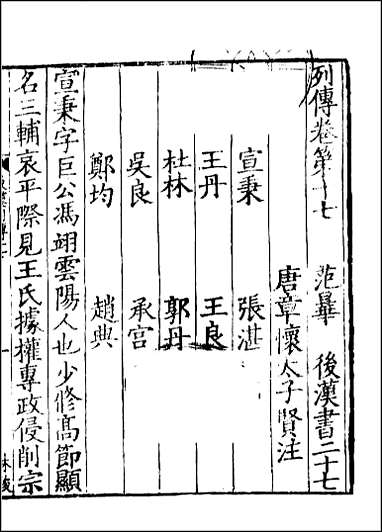 列傳卷第十七 范曅 後漢書二十七
唐章懷太子賢注
宣秉 張湛
王丹 王良
杜林 郭丹
吳良 承宫
鄭均 趙典
宣秉字巨公馮翊雲陽人也少修髙節顯
名三輔哀平際見王氏據權專政侵削宗